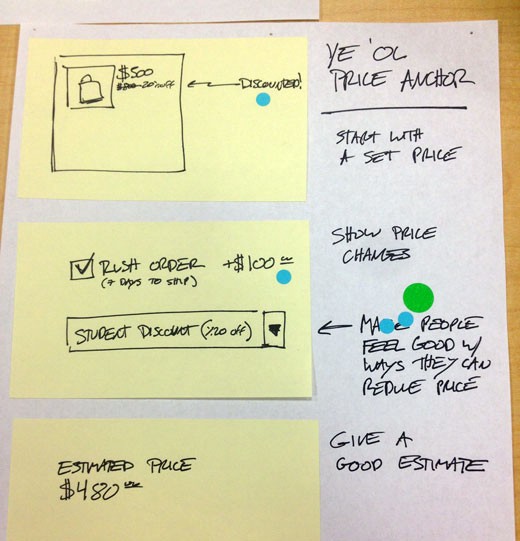 YE 'OL
PRICE ANCHOR
$500
20% off
DISCOUNTED!
START WITH
A SET PRICE
SHOW PRICE
CHANGES
RUSH ORDER +$100
(7 DAYS TO SHIP)
STUDENT DISCOUNT (%20 off)
PEOPLE
FEEL GOOD W/
WAYS THEY CAN
REDUCE PRICE
GIVE A
GOOD ESTIMATE
ESTIMATED PRICE
$480